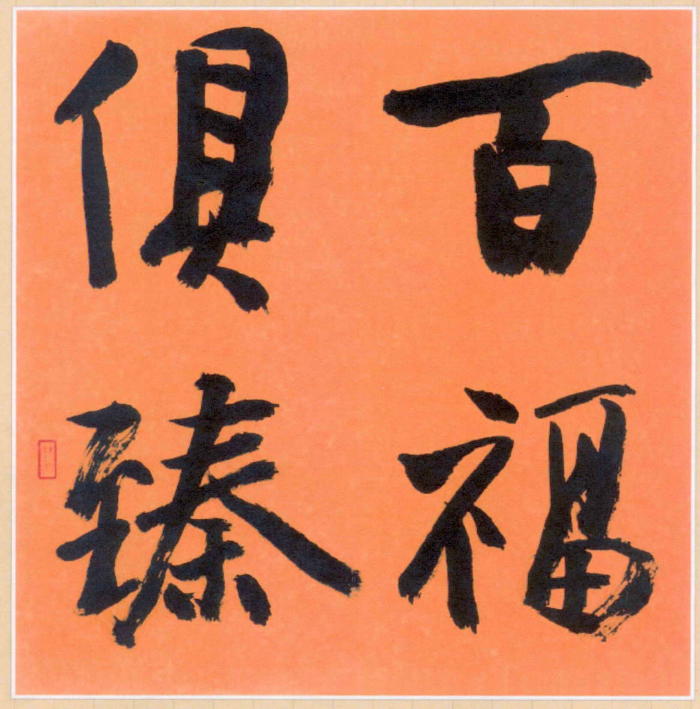 百福
俱臻